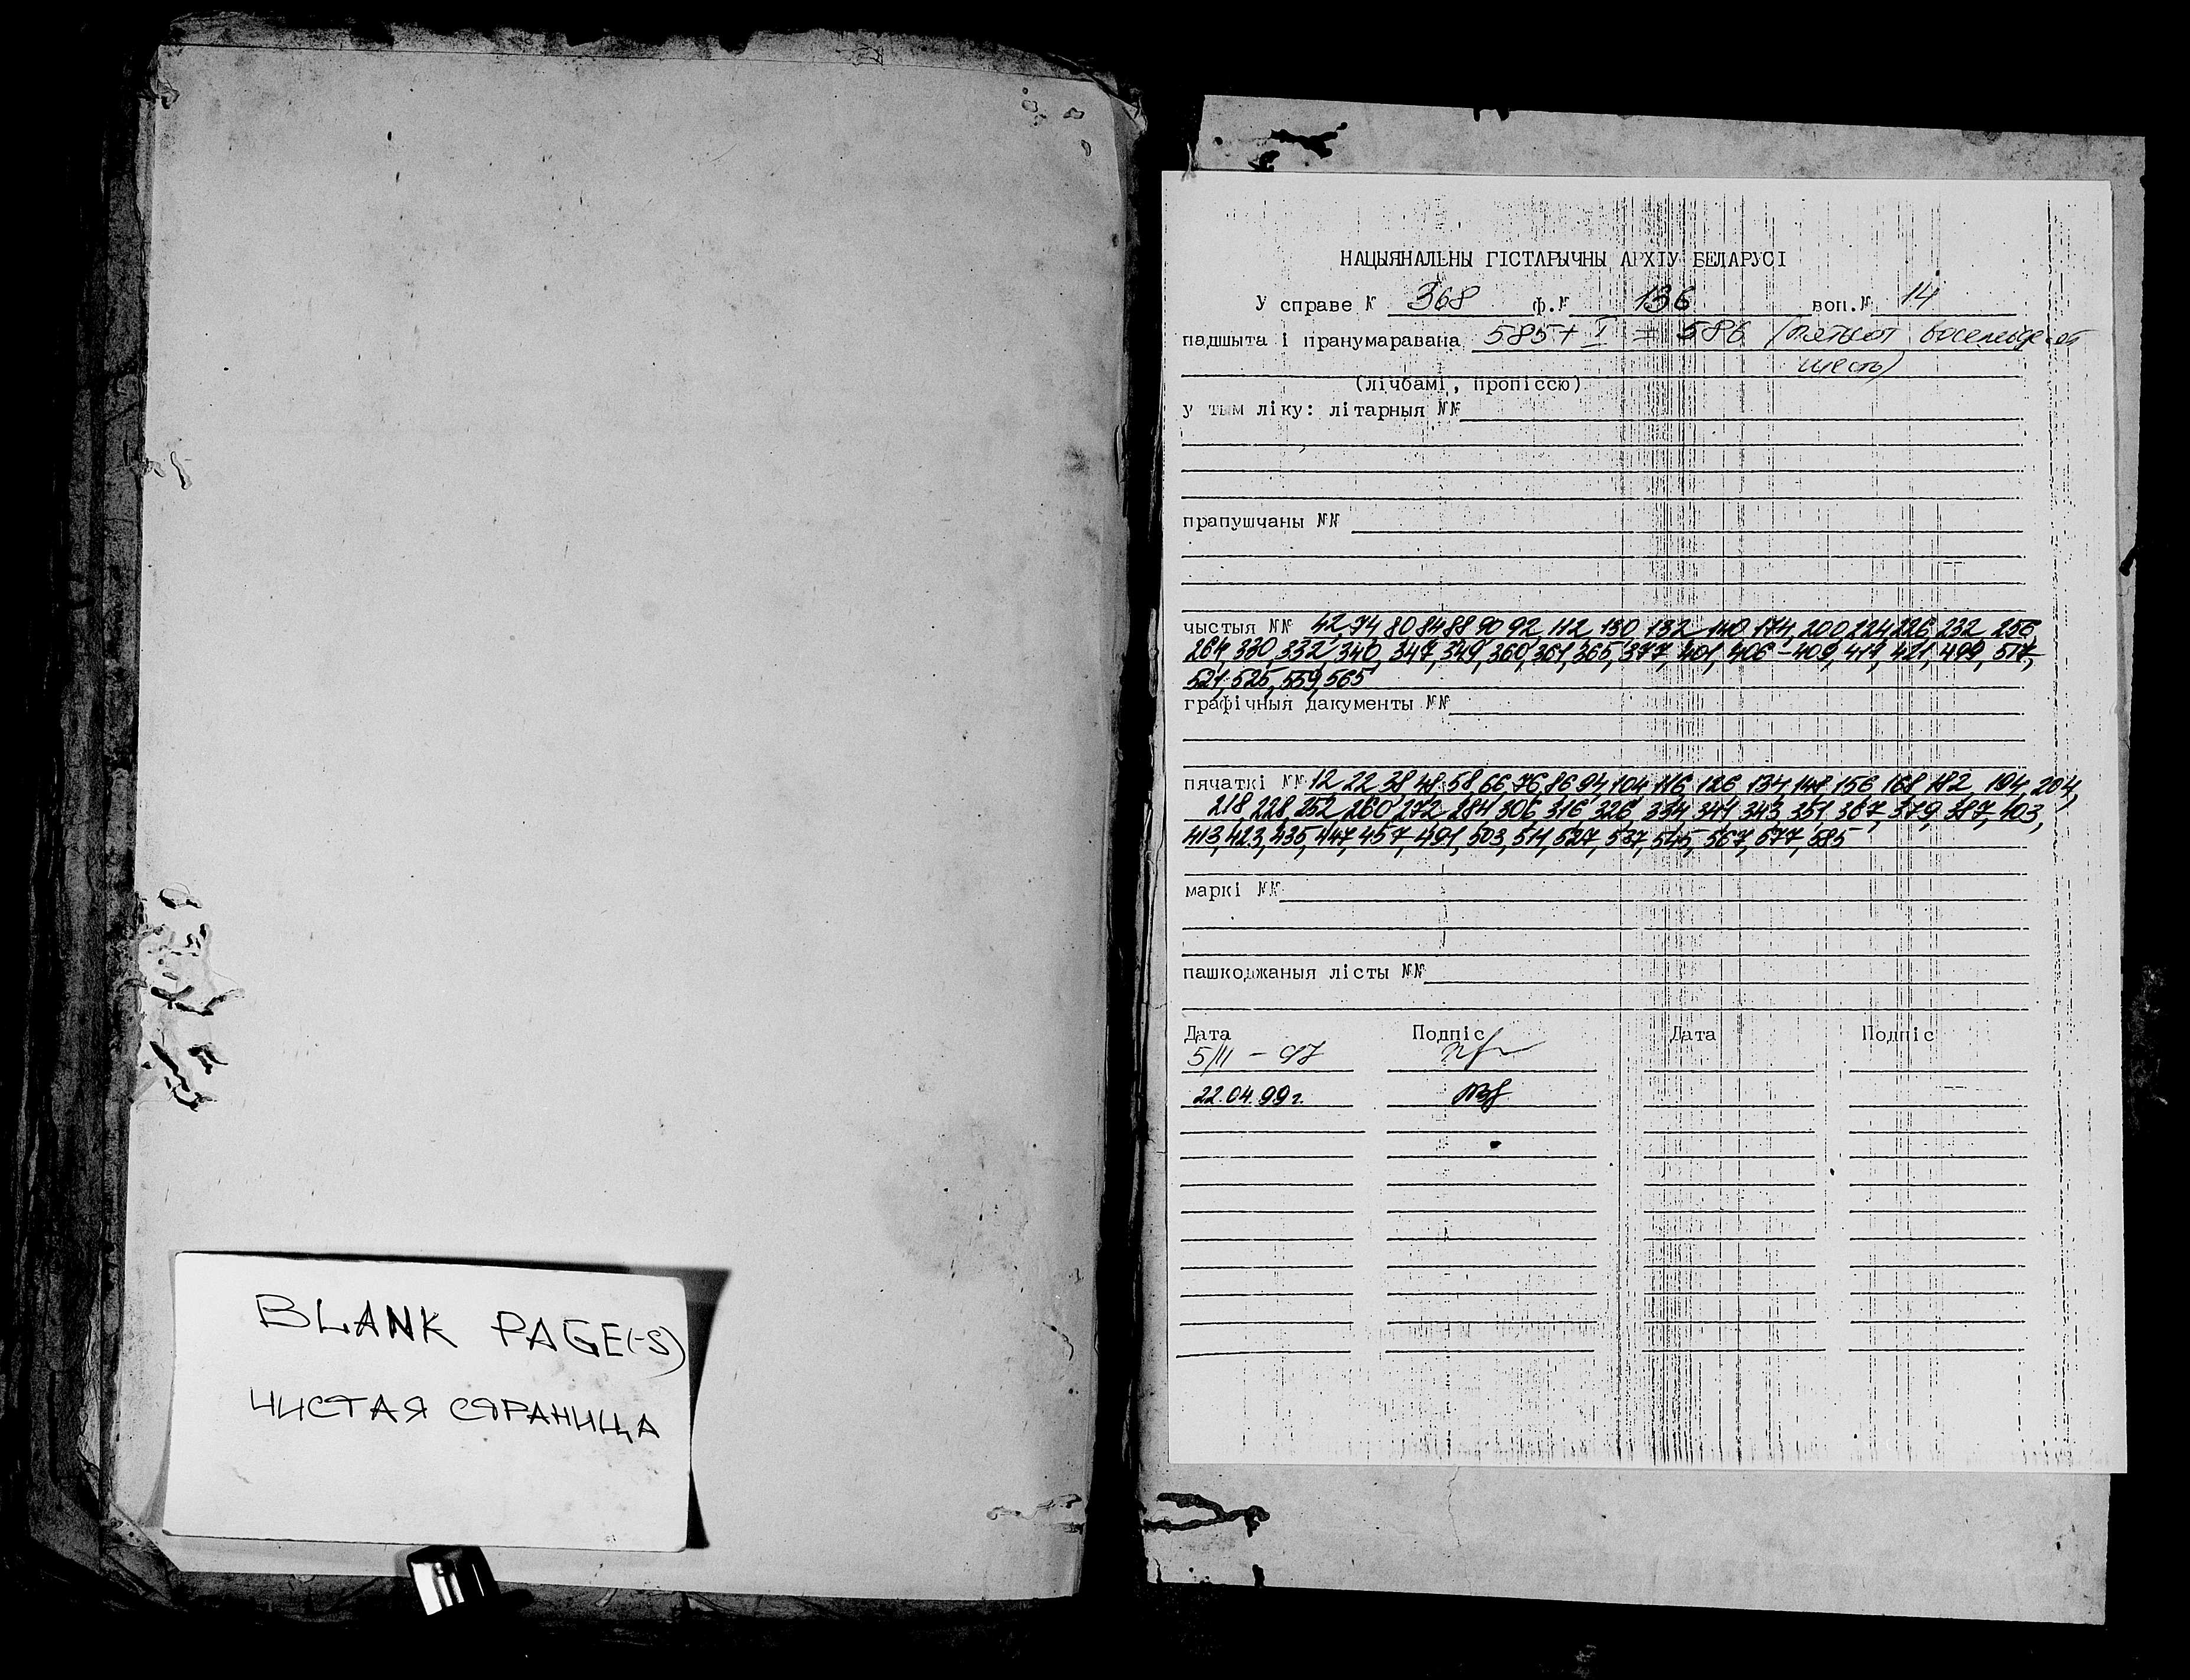 BLANK PAGE(-S)
ЧИСТАЯ СТРАНИЦА
НАЦЫЯНАЛЬНЫ ГІСТАРЫЧНЫ АРХІУ БЕЛАРУСІ
У справе № 368 ф.№ 136 воп.№ 14
падшыта і пранумаравана 585 + I = 586 (пятьсот восемьдесят
шесть)
(лічбамі, пропіссю)
у тым ліку: літарныя №№
прапушчаны №№
чыстыя №№ 42, 74 80 84 88 90 92, 112, 130, 132, 140, 174, 200, 224, 226, 232, 256,
264, 330, 332, 340, 347, 349, 360, 361, 365, 377, 401, 406-409, 419, 421, 499, 517,
521, 525, 559, 565
графічныя дакументы №№
пячаткі №№ 12, 22, 38, 48, 58, 66, 76, 86, 94, 104, 116, 126, 134, 148, 156, 168, 182, 194, 204,
218, 228, 252, 260, 272, 284, 306, 316, 326, 334, 341, 343, 351, 367, 379, 387, 403,
413, 423, 435, 447, 457, 491, 503, 511, 527, 537, 545, 567, 577, 585
маркі №№
пашкоджаныя лісты №№
Дата Подпіс Дата Подпіс
5/II - 97
22.04.99г.